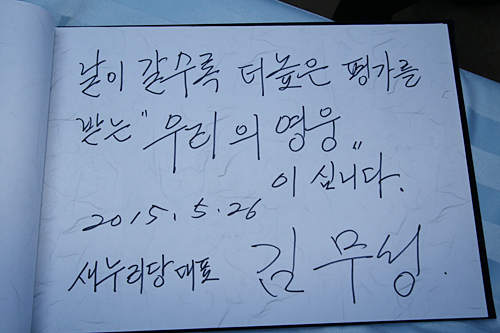 날이 갈수록 더높은 평가를
받는 "우리의 영웅"
이십니다.
2015. 5. 26
새누리당대표 김무성.